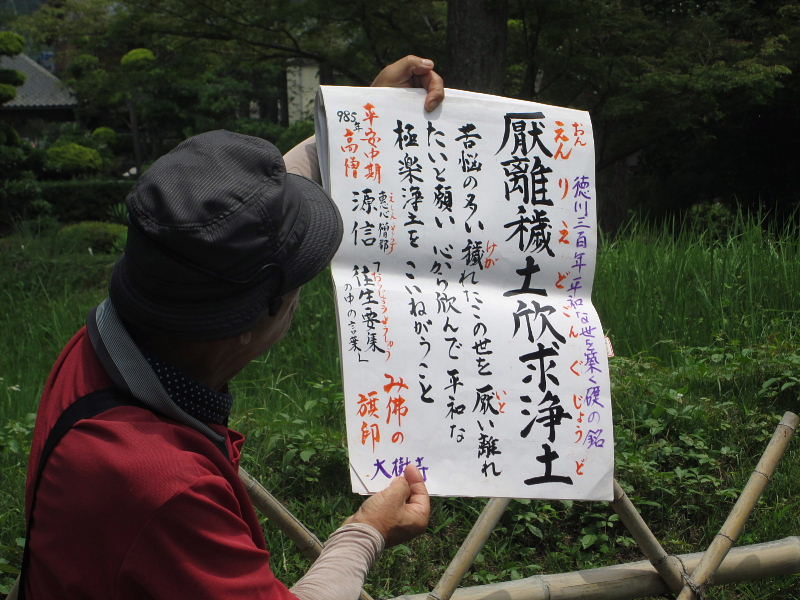 徳川三百年平和な世を築く礎の銘
おん
えんりえどごんぐじょうど
厭離穢土欣求浄土
けが
いと
苦悩の多い穢れたこの世を厭い離れ
たいと願い 心から欣んで 平和な
極楽浄土を こいねがうこと
平安中期
985年
高僧
恵心僧都
源信
おうじょうようしゅう
「往生要集」
の中の言葉
み佛の
旗印
大樹寺